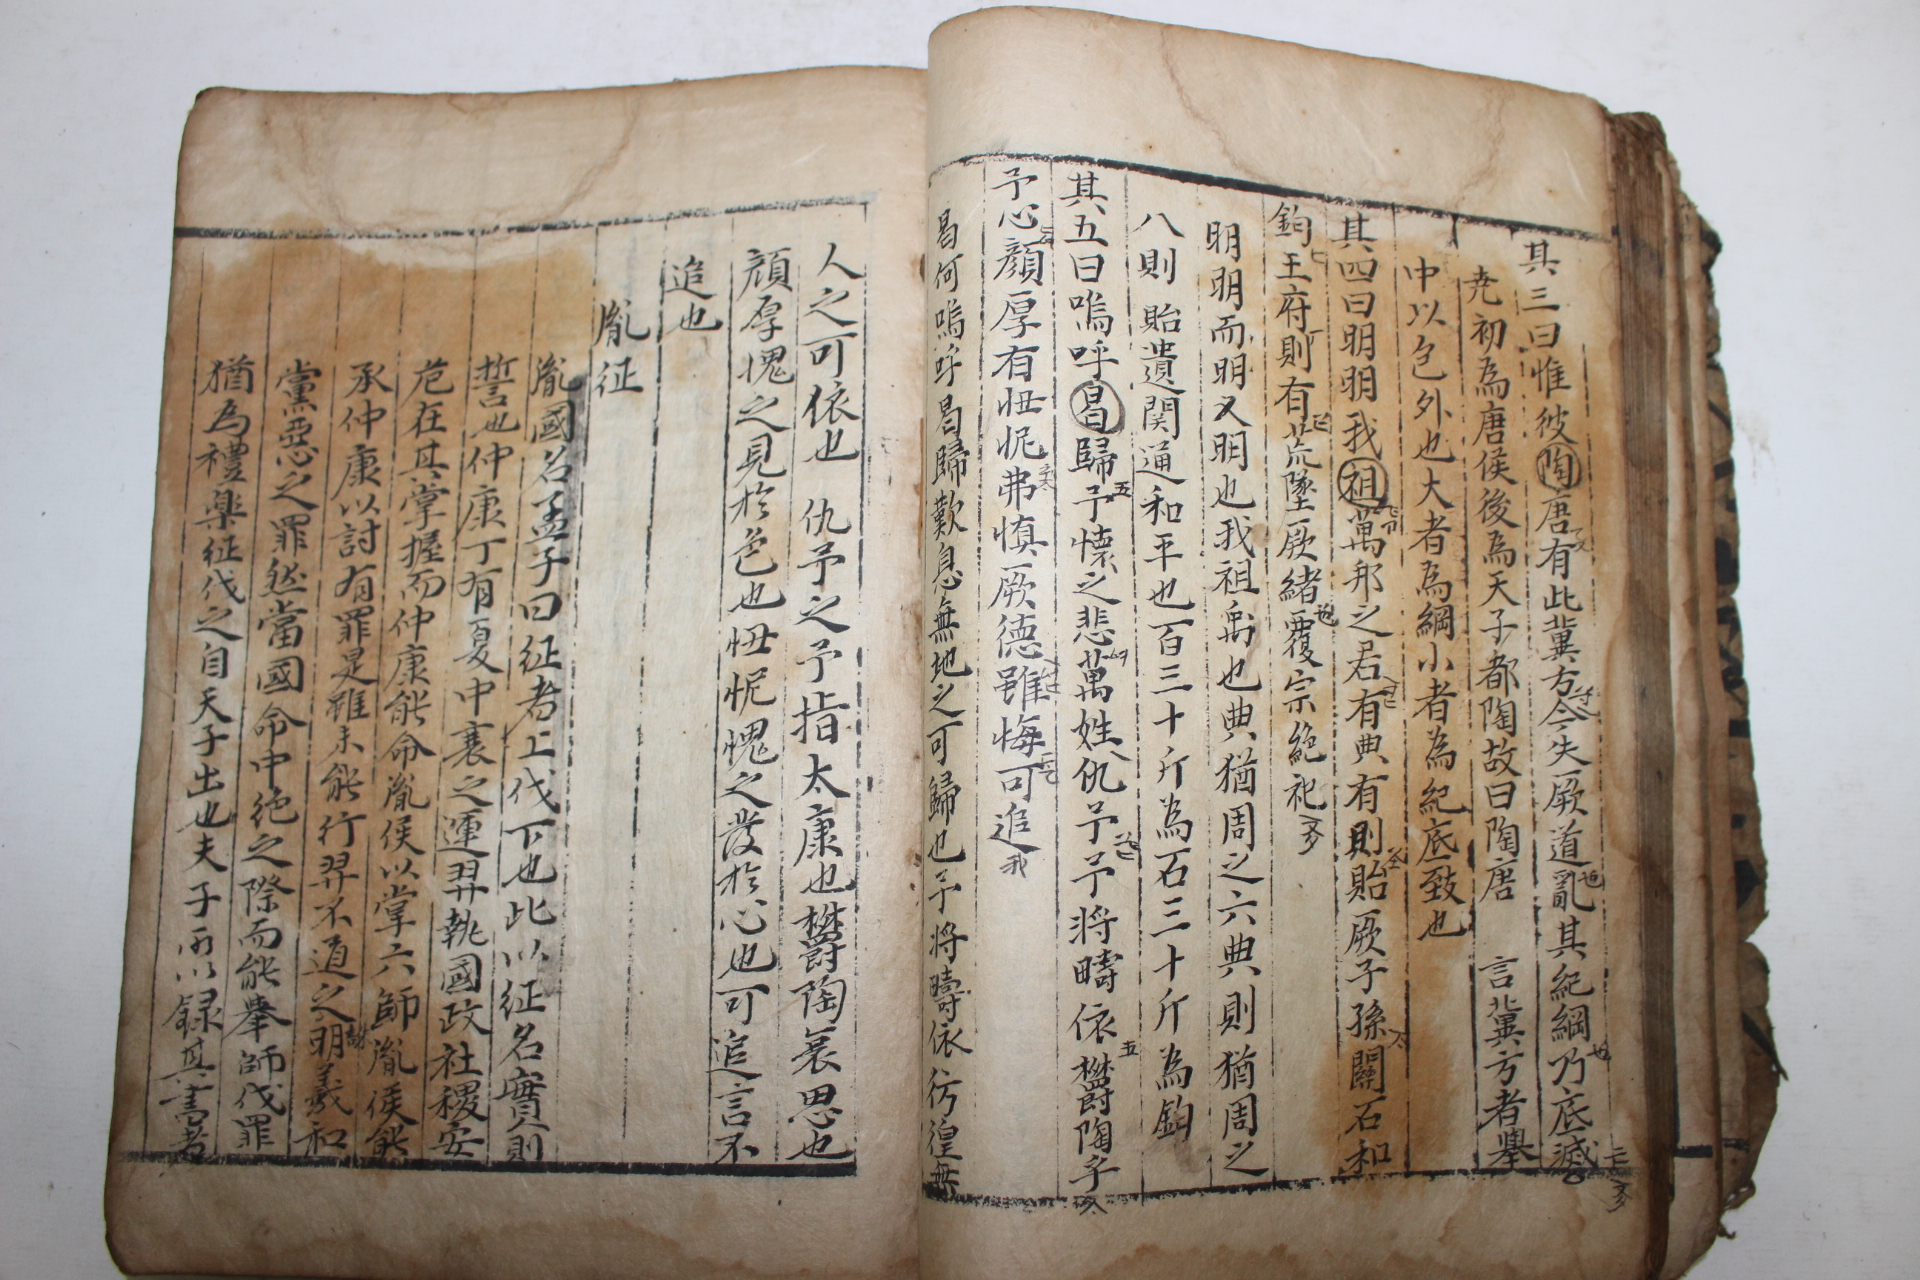 其三曰惟彼陶唐有此冀方今失厥道亂其紀綱乃底滅
堯初為唐侯後為天子都陶故曰陶唐 言冀方者舉
中以包外也大者為綱小者為紀底致也
其四曰明明我祖萬邦之君有典有則貽厥子孫關石和
鈞王府則有荒墜厥緒覆宗絕祀
明明而明又明也我祖禹也典猶周之六典則猶周之
八則 貽遺関通和平也百三十斤為石三十斤為鈞
其五曰嗚呼曷歸予懷之悲萬姓仇予予將疇依欝陶乎
予心顏厚有忸怩弗慎厥德雖悔可追
曷何嗚呼曷歸歎息無地之可歸也予將疇依彷徨無
人之可依也 仇予之予指太康也欝陶哀思也
顏厚愧之見於色也忸怩愧之發於心也可追言不
追也
胤征
胤國名孟子曰征者上伐下也此以征名實則
誓也仲康丁有夏中衰之運羿執國政社稷安
危在其掌握而仲康能命胤侯以掌六師胤侯能
承仲康以討有罪是雖未能行羿不道之明義和
黨惡之罪然當國命中絕之際而能舉師伐罪
猶為禮樂征伐之自天子出也夫子所以録其書者